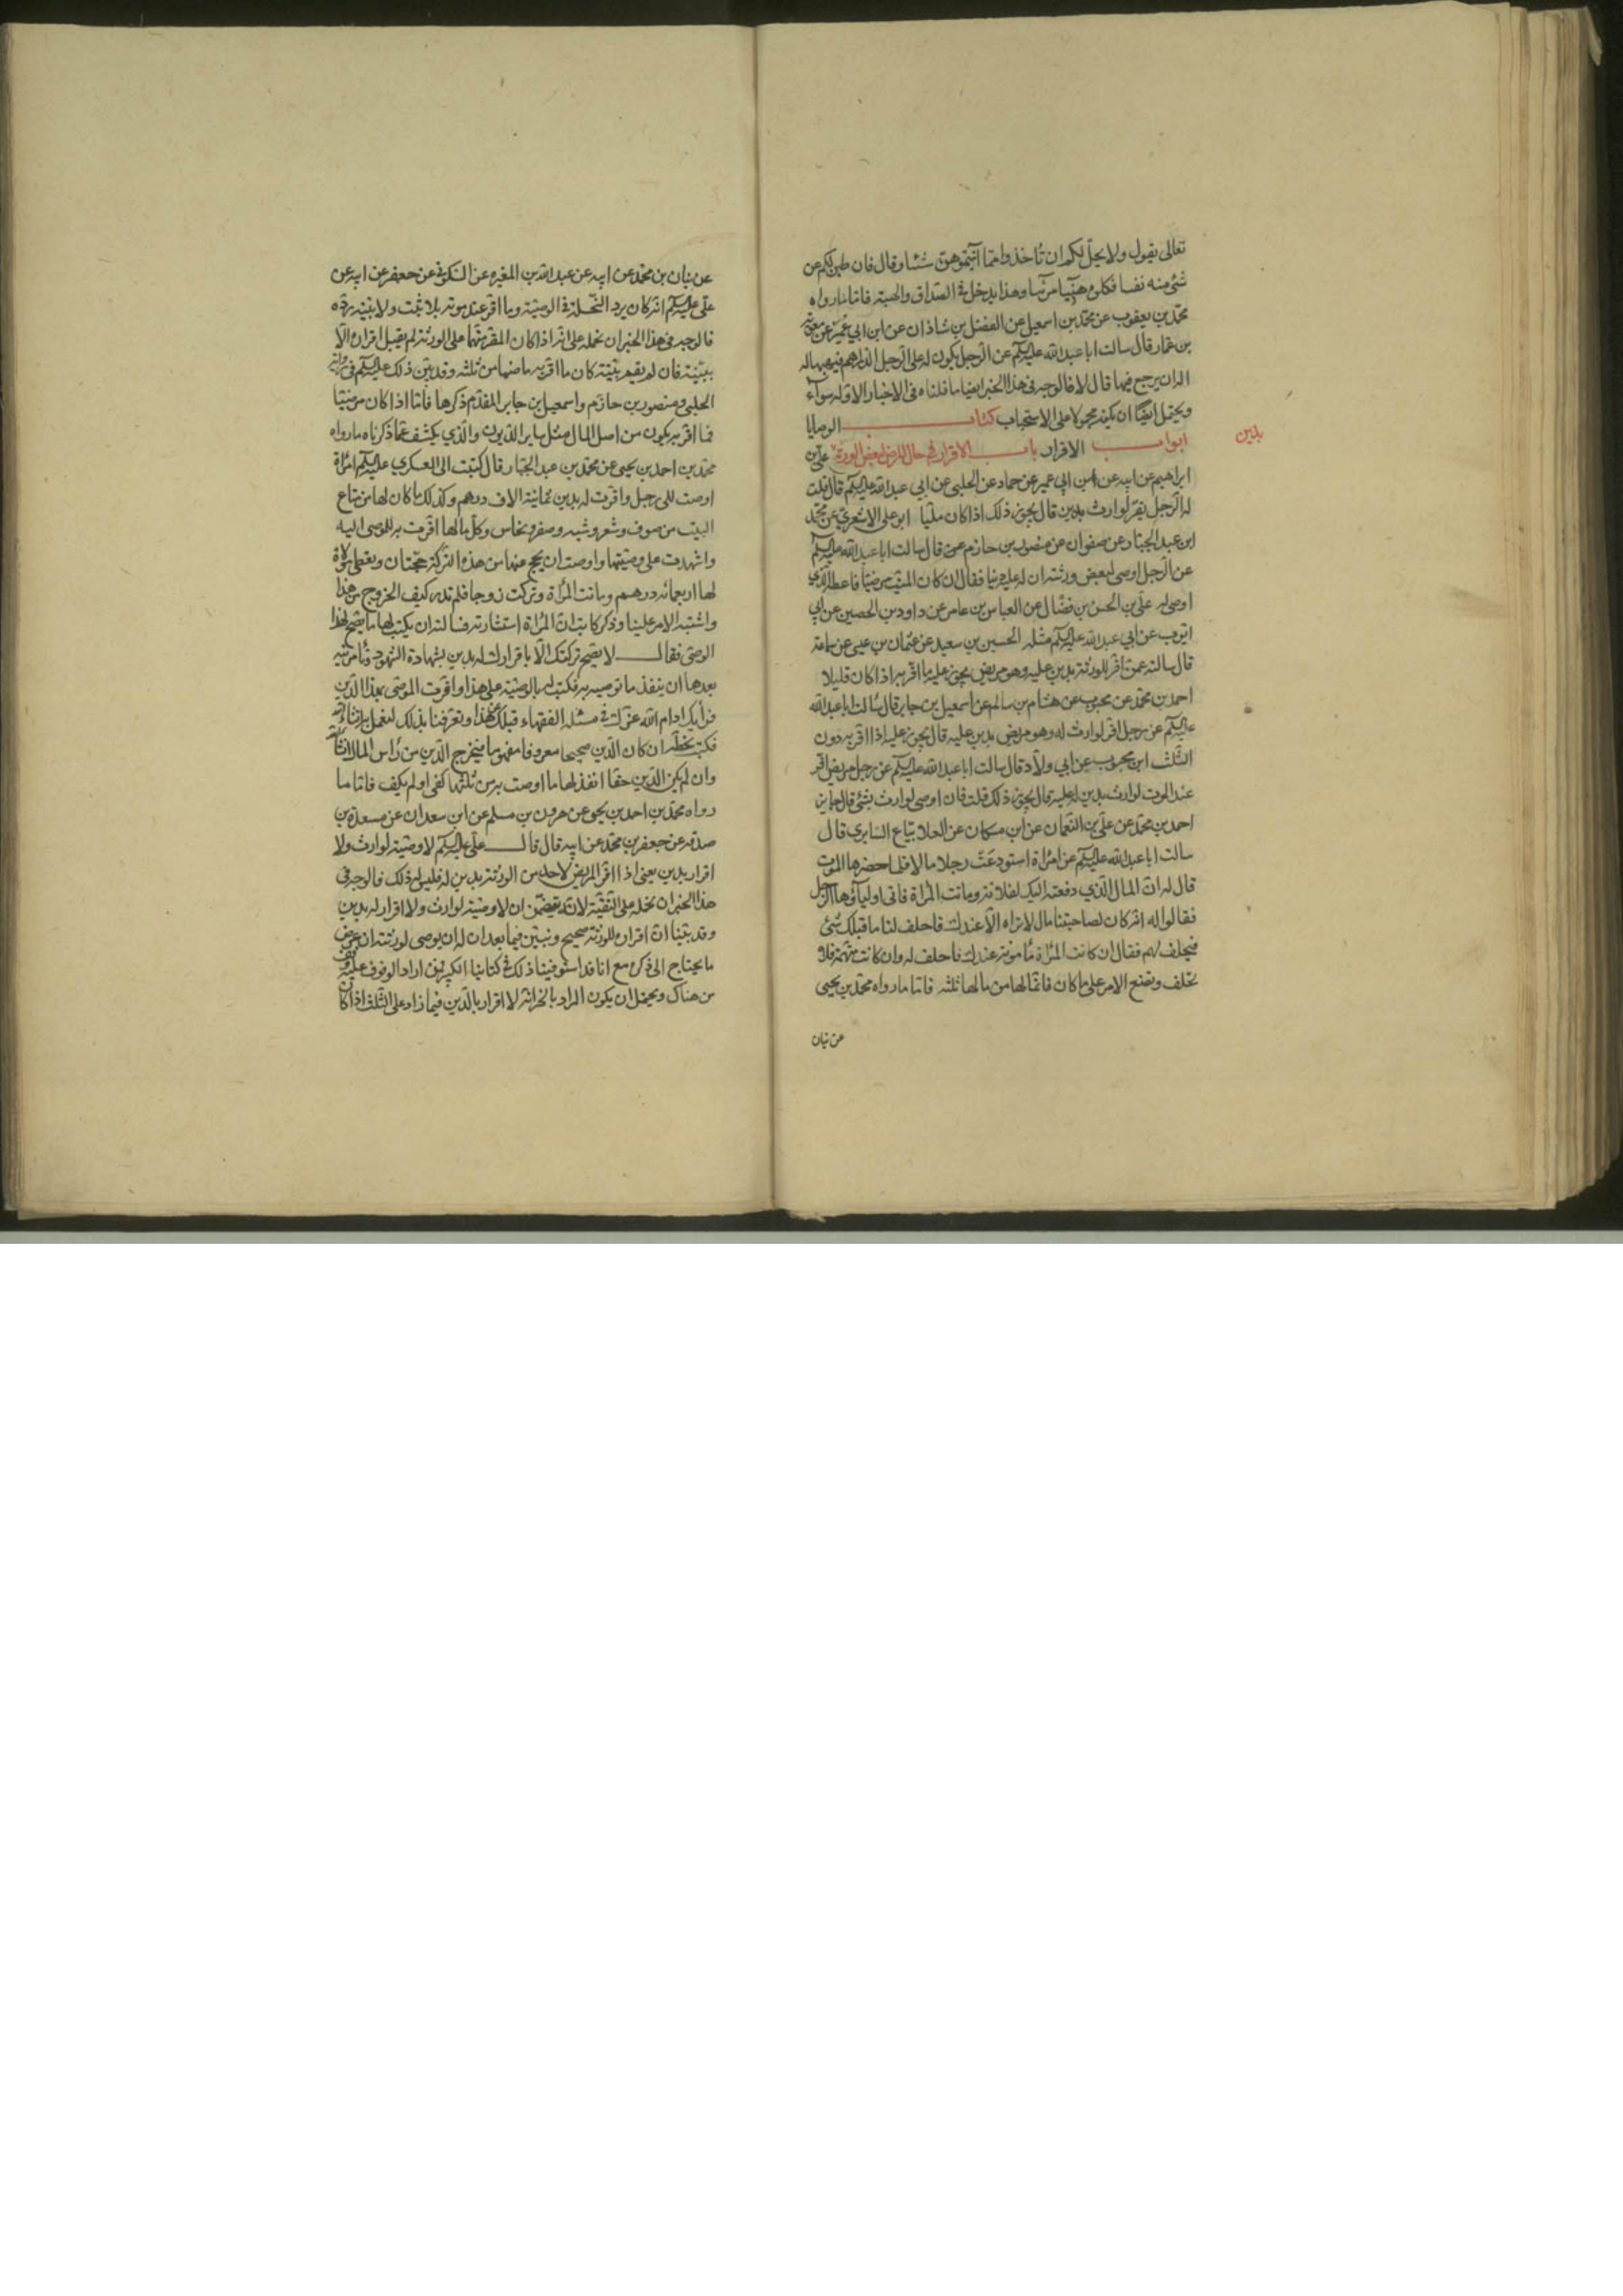 تعالى يقول ولا يحل لكم ان تأخذوا مما آتيتموهن شيئا وقال فان طبن لكم عن
شئ منه نفسا فكلوه هنيئا مريئا وهذا يدخل في الصداق والهبة فاما ما رواه
محمد بن يعقوب عن محمد بن اسمعيل عن الفضل بن شاذان عن ابن ابي عمير عن معوية
بن عمار قال سالت ابا عبدالله عليه السلم عن الرجل يكون له على الرجل الدراهم فيهبها له
اله ان يرجع فيها قال لا فالوجه في هذا الخبر ايضا ما قلناه في الاخبار الاوله سواء
ويحتمل ايضا ان يكون محمولا على الاستحباب كتاب الوصايا
ابواب الاقرار باب الاقرار في حال المرض لبعض الورثة علي بن
بدين
ابراهيم عن ابيه عن ابن ابي عمير عن حماد عن الحلبي عن ابي عبدالله عليه السلم قال قلت
له الرجل يقر لوارث بدين قال يجوز ذلك اذا كان مليا ابو علي الاشعري عن محمد
ابن عبد الجبار عن صفوان عن منصور بن حازم قال سالت ابا عبدالله عليه السلم
عن الرجل اوصى لبعض ورثته ان له عليه دينا فقال ان كان الميت مرضيا فاعطه الذي
اوصى له علي بن الحسن بن فضال عن العباس بن عامر عن داود بن الحصين عن ابي
ايوب عن ابي عبدالله عليه السلم مثله الحسين بن سعيد عن عثمان بن عيسى عن سماعة
قال سالته عمن اقر للورثة بدين عليه وهو مريض يجوز عليه ما اقر به اذا كان قليلا
احمد بن محمد عن محبوب عن هشام بن سالم عن اسمعيل بن جابر قال سألت ابا عبدالله
عليه السلم عن رجل اقر لوارث له وهو مريض بدين عليه قال يجوز عليه اذا اقر به دون
الثلث ابن محبوب عن ابي ولاد قال سالت ابا عبدالله عليه السلم عن رجل مريض اقر
عند الموت لوارث بدين له عليه قال يجوز ذلك قلت فان اوصى لوارث بشئ قال جايز
احمد بن محمد عن علي بن النعمان عن ابن مسكان عن العلا بياع السابري قال
سالت ابا عبدالله عليه السلم عن امرأة استودعت رجلا مالا فلما حضرها الموت
قال له ان المال الذي دفعته اليك لفلانة وماتت المرأة فاتى اولياؤها الرجل
فقالوا له انه كان لصاحبتنا مال لا نراه الا عندك فاحلف لنا ما قبلك شئ
فيحلف لهم فقال ان كانت المرأة مأمونة عندك فاحلف له وان كانت متهمة فلا
تحلف وتضع الامر على ما كان فانما لها من مالها ثلثه فاما ما رواه محمد بن يحيى
عن بنان
عن بنان بن محمد عن ابيه عن عبدالله بن المغيره عن السكوني عن جعفر عن ابيه عن
علي عليه السلم انه كان يرد النحلة في الوصية وما اقر عند موته بلا ثبت ولا بينة رده
فالوجه في هذا الخبر ان نحمله على انه اذا كان المقر متهما على الورثة لم يقبل اقراره الا
ببينة فان لم يقم بينة كان ما اقر به ماضيا من ثلثه وقد بين ذلك عليه السلم في رواية
الحلبي ومنصور بن حازم واسمعيل بن جابر المقدم ذكرها فاما اذا كان مرضيا
فما اقر به يكون من اصل المال مثل ساير الديون والذي يكشف عما ذكرناه ما رواه
محمد بن احمد بن يحيى عن محمد بن عبد الجبار قال كتبت الى العسكري عليه السلم امرأة
اوصت الى رجل واقرت له بدين ثمانية الاف درهم وكذلك ما كان لها من متاع
البيت من صوف وشعر وشبه وصفر ونحاس وكل مالها اقرت به للموصى اليه
واشهدت على وصيتها واوصت ان يحج عنها من هذه التركة حجتان ويعطى مولاة
لها اربعمائه درهم وماتت المرأة وتركت زوجا فلم ندر كيف الخروج من هذا
واشتبه الامر علينا وذكر كاتب ان المرأة استشارته فسالته ان يكتب لها ما يصح لهذا
الوصي فقال لا يصح تركتك الا باقرارك له بدين بشهادة الشهود وتأمرنيه
بعدها ان ينفذ ما توصيه به فكتبت له بالوصية على هذا واقرت للوصي بهذا الدين
فرأيك ادام الله عزك في مسئلة الفقهاء قبلك عن هذا وتعرفنا بذلك لنعمل به ان شاء الله
فكتب بخطه ان كان الدين صحيحا معروفا مفهوما فيخرج الدين من رأس المال ان شاء الله
وان لم يكن الدين حقا انفذ لها ما اوصت به من ثلثها كفى او لم يكف فاما ما
رواه محمد بن احمد بن يحيى عن هرون بن مسلم عن ابن سعدان عن مسعدة بن
صدقه عن جعفر بن محمد عن ابيه قال قال علي عليه السلم لا وصية لوارث ولا
اقرار بدين يعني اذا اقر المريض لاحد من الورثة بدين له فليس له ذلك فالوجه في
هذا الخبر ان نحمله على التقية لانه يتضمن ان لا وصية لوارث ولا اقرار له بدين
وقد بينا ان اقراره للورثة صحيح ونبين فيما بعد ان له ان يوصى لورثته ان عرض
ما يحتاج الى ذكره مع انا قد استوفينا ذلك في كتابنا الكبير فمن اراد الوقوف عليه وقف
من هناك ويحتمل ان يكون المراد بالخبر انه لا اقرار بالدين فيما زاد على الثلث اذا كان